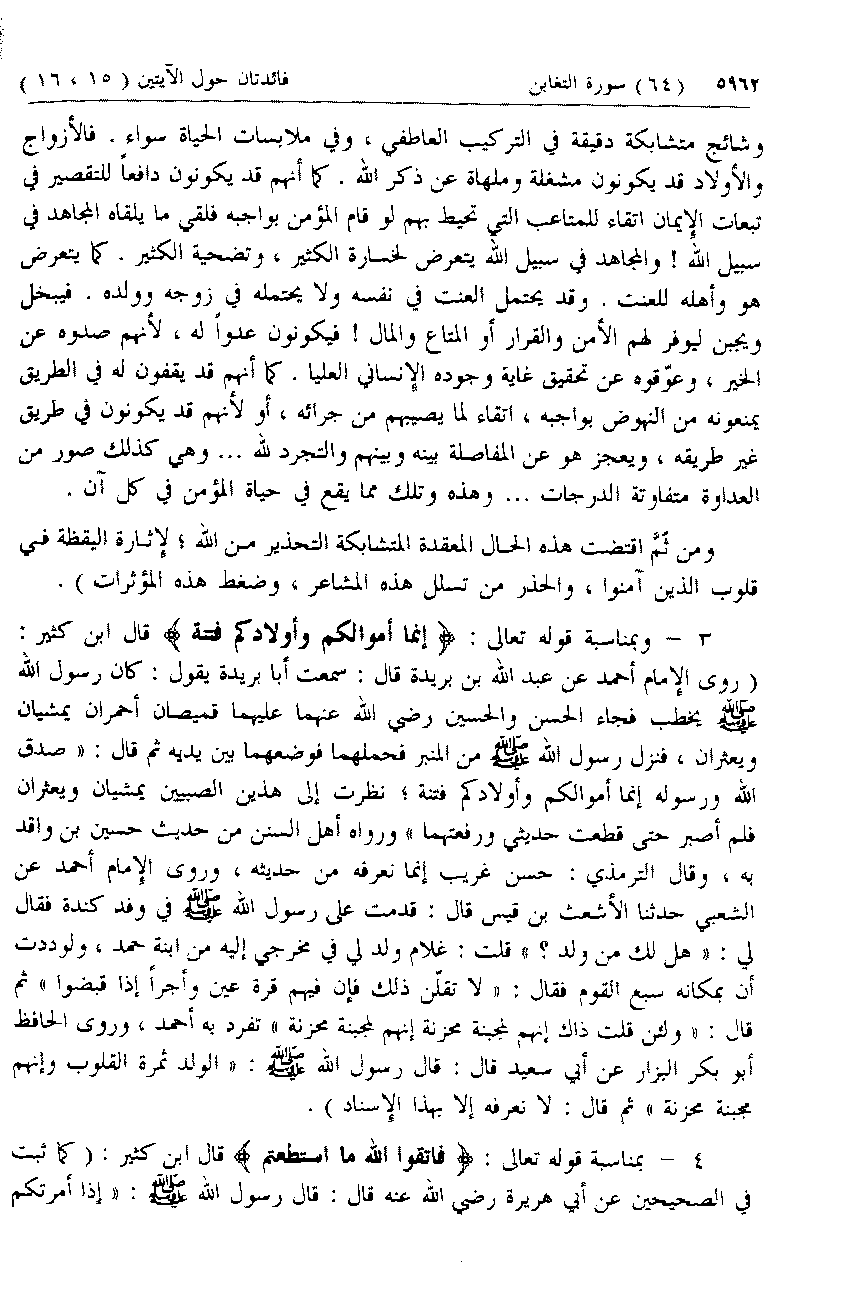 ٥٩٦٢ (٦٤) سورة التغابن فائدتان حول الآيتين ( ١٥ ، ١٦ )
وشائج متشابكة دقيقة في التركيب العاطفي ، وفي ملابسات الحياة سواء . فالأزواج
والأولاد قد يكونون مشغلة وملهاة عن ذكر الله . كما أنهم قد يكونون دافعاً للتقصير في
تبعات الإيمان اتقاء للمتاعب التي تحيط بهم لو قام المؤمن بواجبه فلقي ما يلقاه المجاهد في
سبيل الله ! والمجاهد في سبيل الله يتعرض لخسارة الكثير ، وتضحية الكثير . كما يتعرض
هو وأهله للعنت . وقد يحتمل العنت في نفسه ولا يحتمله في زوجه وولده . فيبخل
ويجبن ليوفر لهم الأمن والقرار أو المتاع والمال ! فيكونون عدواً له ، لأنهم صدوه عن
الخير ، وعوّقوه عن تحقيق غاية وجوده الإنساني العليا . كما أنهم قد يقفون له في الطريق
يمنعونه من النهوض بواجبه ، اتقاء لما يصيبهم من جرائه ، أو لأنهم قد يكونون في طريق
غير طريقه ، ويعجز هو عن المفاصلة بينه وبينهم والتجرد لله ... وهي كذلك صور من
العداوة متفاوتة الدرجات ... وهذه وتلك مما يقع في حياة المؤمن في كل آن .
ومن ثَمَّ اقتضت هذه الحال المعقدة المتشابكة التحذير من الله ؛ لإثارة اليقظة في
قلوب الذين آمنوا ، والحذر من تسلل هذه المشاعر ، وضغط هذه المؤثرات ) .
٣ - وبمناسبة قوله تعالى : ﴿ إنما أموالكم وأولادكم فتنة ﴾ قال ابن كثير :
( روى الإمام أحمد عن عبد الله بن بريدة قال : سمعت أبا بريدة يقول : كان رسول الله
ﷺ يخطب فجاء الحسن والحسين رضي الله عنهما عليهما قميصان أحمران يمشيان
ويعثران ، فنزل رسول الله ﷺ من المنبر فحملهما فوضعهما بين يديه ثم قال : « صدق
الله ورسوله إنما أموالكم وأولادكم فتنة ؛ نظرت إلى هذين الصبيين يمشيان ويعثران
فلم أصبر حتى قطعت حديثي ورفعتهما » ورواه أهل السنن من حديث حسين بن واقد
به ، وقال الترمذي : حسن غريب إنما نعرفه من حديثه ، وروى الإمام أحمد عن
الشعبي حدثنا الأشعث بن قيس قال : قدمت على رسول الله ﷺ في وفد كندة فقال
لي : « هل لك من ولد ؟ » قلت : غلام ولد لي في مخرجي إليه من ابنة حمد ، ولوددت
أن بمكانه سبع القوم فقال : « لا تقلّن ذلك فإن فيهم قرة عين وأجراً إذا قبضوا » ثم
قال : « ولئن قلت ذاك إنهم لمجبنة محزنة إنهم لمجبنة محزنة » تفرد به أحمد ، وروى الحافظ
أبو بكر البزار عن أبي سعيد قال : قال رسول الله ﷺ : « الولد ثمرة القلوب وإنهم
مجبنة محزنة » ثم قال : لا نعرفه إلا بهذا الإسناد ) .
٤ - بمناسبة قوله تعالى : ﴿ فاتقوا الله ما استطعتم ﴾ قال ابن كثير : ( كما ثبت
في الصحيحين عن أبي هريرة رضي الله عنه قال : قال رسول الله ﷺ : « إذا أمرتكم